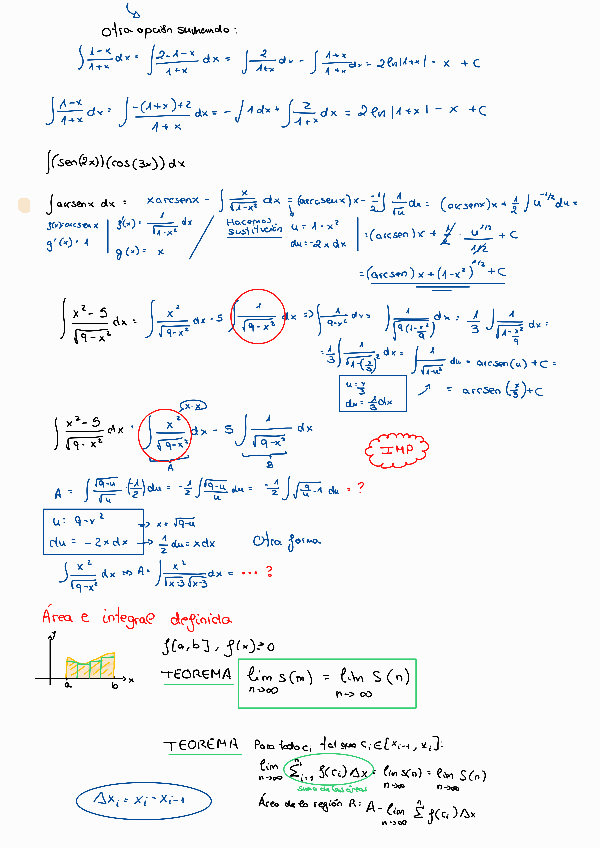 Otra opción sumando:
∫ (1-x)/(1+x) dx = ∫ (2-1-x)/(1+x) dx = ∫ 2/(1+x) dx - ∫ (1+x)/(1+x) dx = 2 ln|1+x| - x + C
∫ (1-x)/(1+x) dx = ∫ (-(1+x)+2)/(1+x) dx = -∫ 1 dx + ∫ 2/(1+x) dx = 2 ln|1+x| - x + C
∫ (sen(2x))(cos(3x)) dx
∫ arcsenx dx = xarcsenx - ∫ x/√(1-x²) dx = (arcsenx)x - -1/2 ∫ 1/√u du = (arcsenx)x + 1/2 ∫ u^(-1/2) du =
f(x)=arcsenx f'(x) = 1/√(1-x²) dx Hacemos sustitución u = 1-x² = (arcsen)x + 1/2 · u^(1/2)/(1/2) + C
g'(x) = 1 g(x) = x du = -2x dx
= (arcsen)x + (1-x²)^(1/2) + C
∫ (x²-5)/√(9-x²) dx = ∫ x²/√(9-x²) dx - 5 ∫ 1/√(9-x²) dx => ∫ 1/√(9-x²) dx = ∫ 1/√(9(1-x²/9)) dx = 1/3 ∫ 1/√(1-x²/9) dx =
= 1/3 ∫ 1/√(1-(x/3)²) dx = ∫ 1/√(1-u²) du = arcsen(u) + C =
u = x/3
du = 1/3 dx
= arcsen(x/3) + C
x·x
∫ (x²-5)/√(9-x²) dx = ∫ x²/√(9-x²) dx - 5 ∫ 1/√(9-x²) dx
A B
IMP
A = ∫ √(9-u)/√u (-1/2) du = -1/2 ∫ √(9-u)/√u du = -1/2 ∫ √(9/u - 1) du = ?
u = 9-x² => x = √(9-u)
du = -2x dx -> 1/2 du = x dx Otra forma
∫ x²/√(9-x²) dx => A = ∫ x²/(√(x-3) √(x-3)) dx = ... ?
Área e integral definida
y
a b x
f[a,b], f(x) ≥ 0
TEOREMA lim n→∞ s(n) = lim n→∞ S(n)
TEOREMA Para todo ci tal que ci ∈ [xi-1, xi]:
lim n→∞ Σ i=1 n f(ci) Δx = lim n→∞ s(n) = lim n→∞ S(n)
suma de las áreas
Δxi = xi - xi-1
Área de la región R: A = lim n→∞ Σ n f(ci) Δx